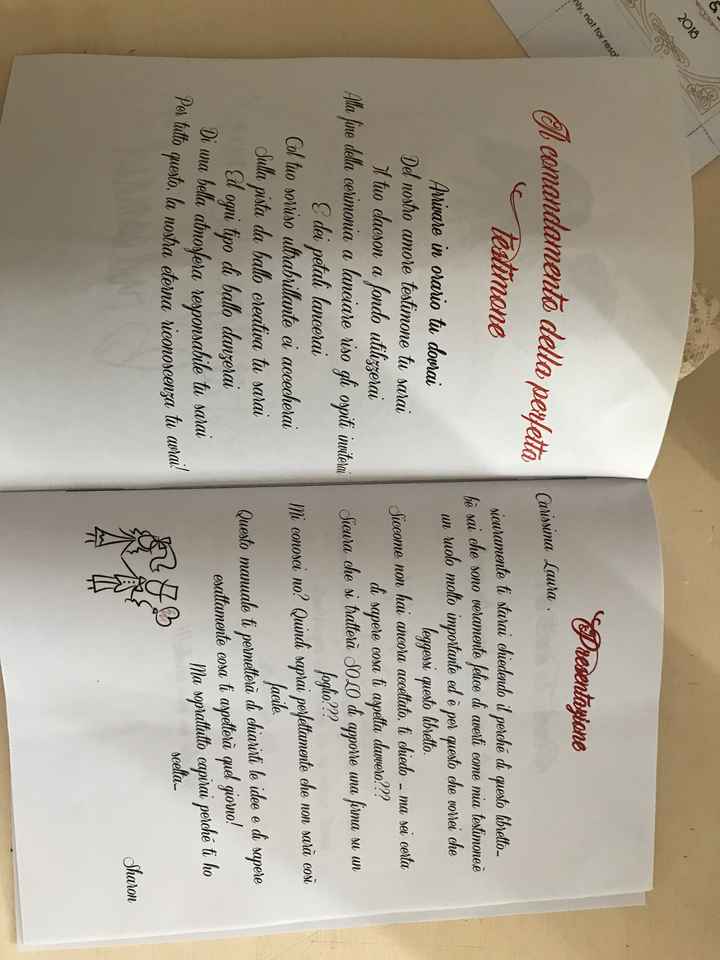 Il comandamento della perfetta
testimone
Arrivare in orario tu dovrai
Del nostro amore testimone tu sarai
Il tuo clacson a fondo utilizzerai
Alla fine della cerimonia a lanciare riso gli ospiti inviterai
E dei petali lancerai
Col tuo sorriso ultrabrillante ci accecherai
Sulla pista da ballo creativa tu sarai
Ed ogni tipo di ballo danzerai
Di una bella atmosfera responsabile tu sarai
Per tutto questo, la nostra eterna riconoscenza tu avrai!
Presentazione
Carissima Laura ,
sicuramente ti starai chiedendo il perché di questo libretto...
bè sai che sono veramente felice di averti come mia testimone,è
un ruolo molto importante ed è per questo che vorrei che
leggessi questo libretto.
Siccome non hai ancora accettato, ti chiedo ... ma sei certa
di sapere cosa ti aspetta davvero???
Sicura che si tratterà SOLO di apporre una firma su un
foglio???
Mi conosci no? Quindi saprai perfettamente che non sarà così
facile.
Questo manuale ti permetterà di chiarirti le idee e di sapere
esattamente cosa ti aspetterà quel giorno!
Ma soprattutto capirai perché ti ho
scelta...
Sharon
&
2018
only, not for resa